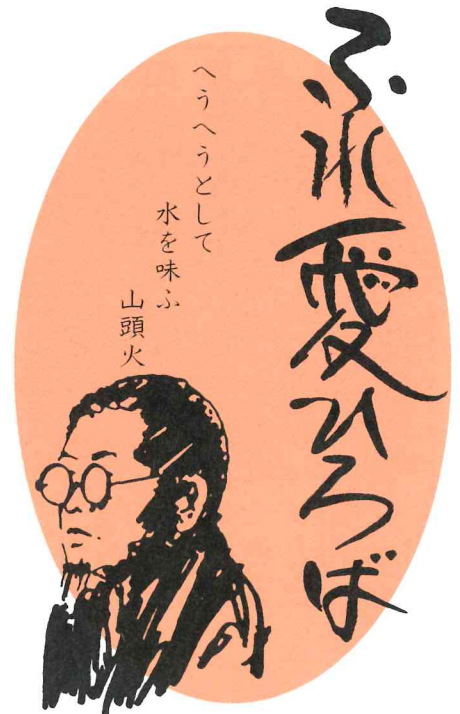 ふれ愛ひろば
へうへうとして
水を味ふ
山頭火